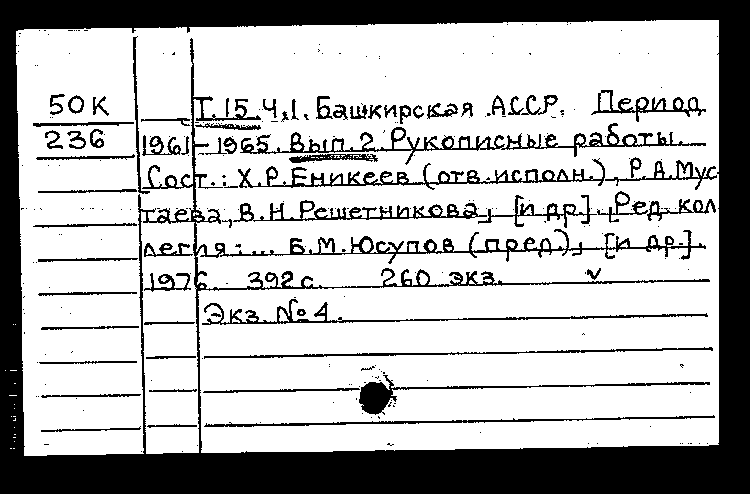 50К
236
Т.15.Ч.1. Башкирская АССР. Период
1961-1965. Вып.2. Рукописные работы.
Сост.: Х.Р.Еникеев (отв.исполн.), Р.А.Мус
таева, В.Н.Решетникова, [и др]. Ред.кол
легия: ... Б.М.Юсупов (пред.), [и др.].
1976. 392с. 260 экз. v
Экз. №4.